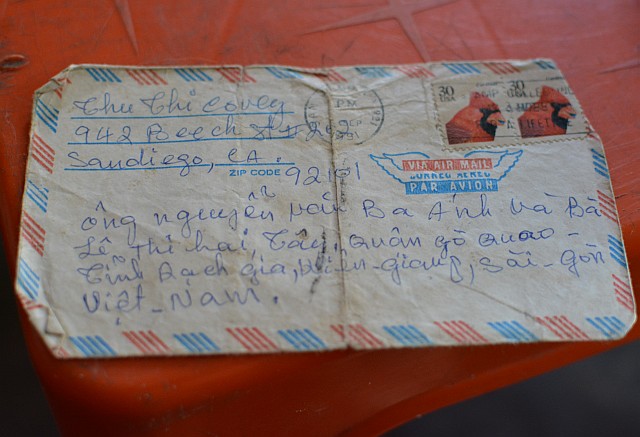 Thu Thi Covey
942 Beech St #
Sandiego, CA.
ZIP CODE 92101
PM
SEP
1991
30
USA
30
VIA AIR MAIL
CORREO AEREO
PAR AVION
Ông nguyễn Văn Ba Ánh Và Bà
Lê Thị hai, Tây, Quân gò Quao -
Tỉnh Rạch gia, Kiên-giang, Sài-gòn
Việt-Nam.